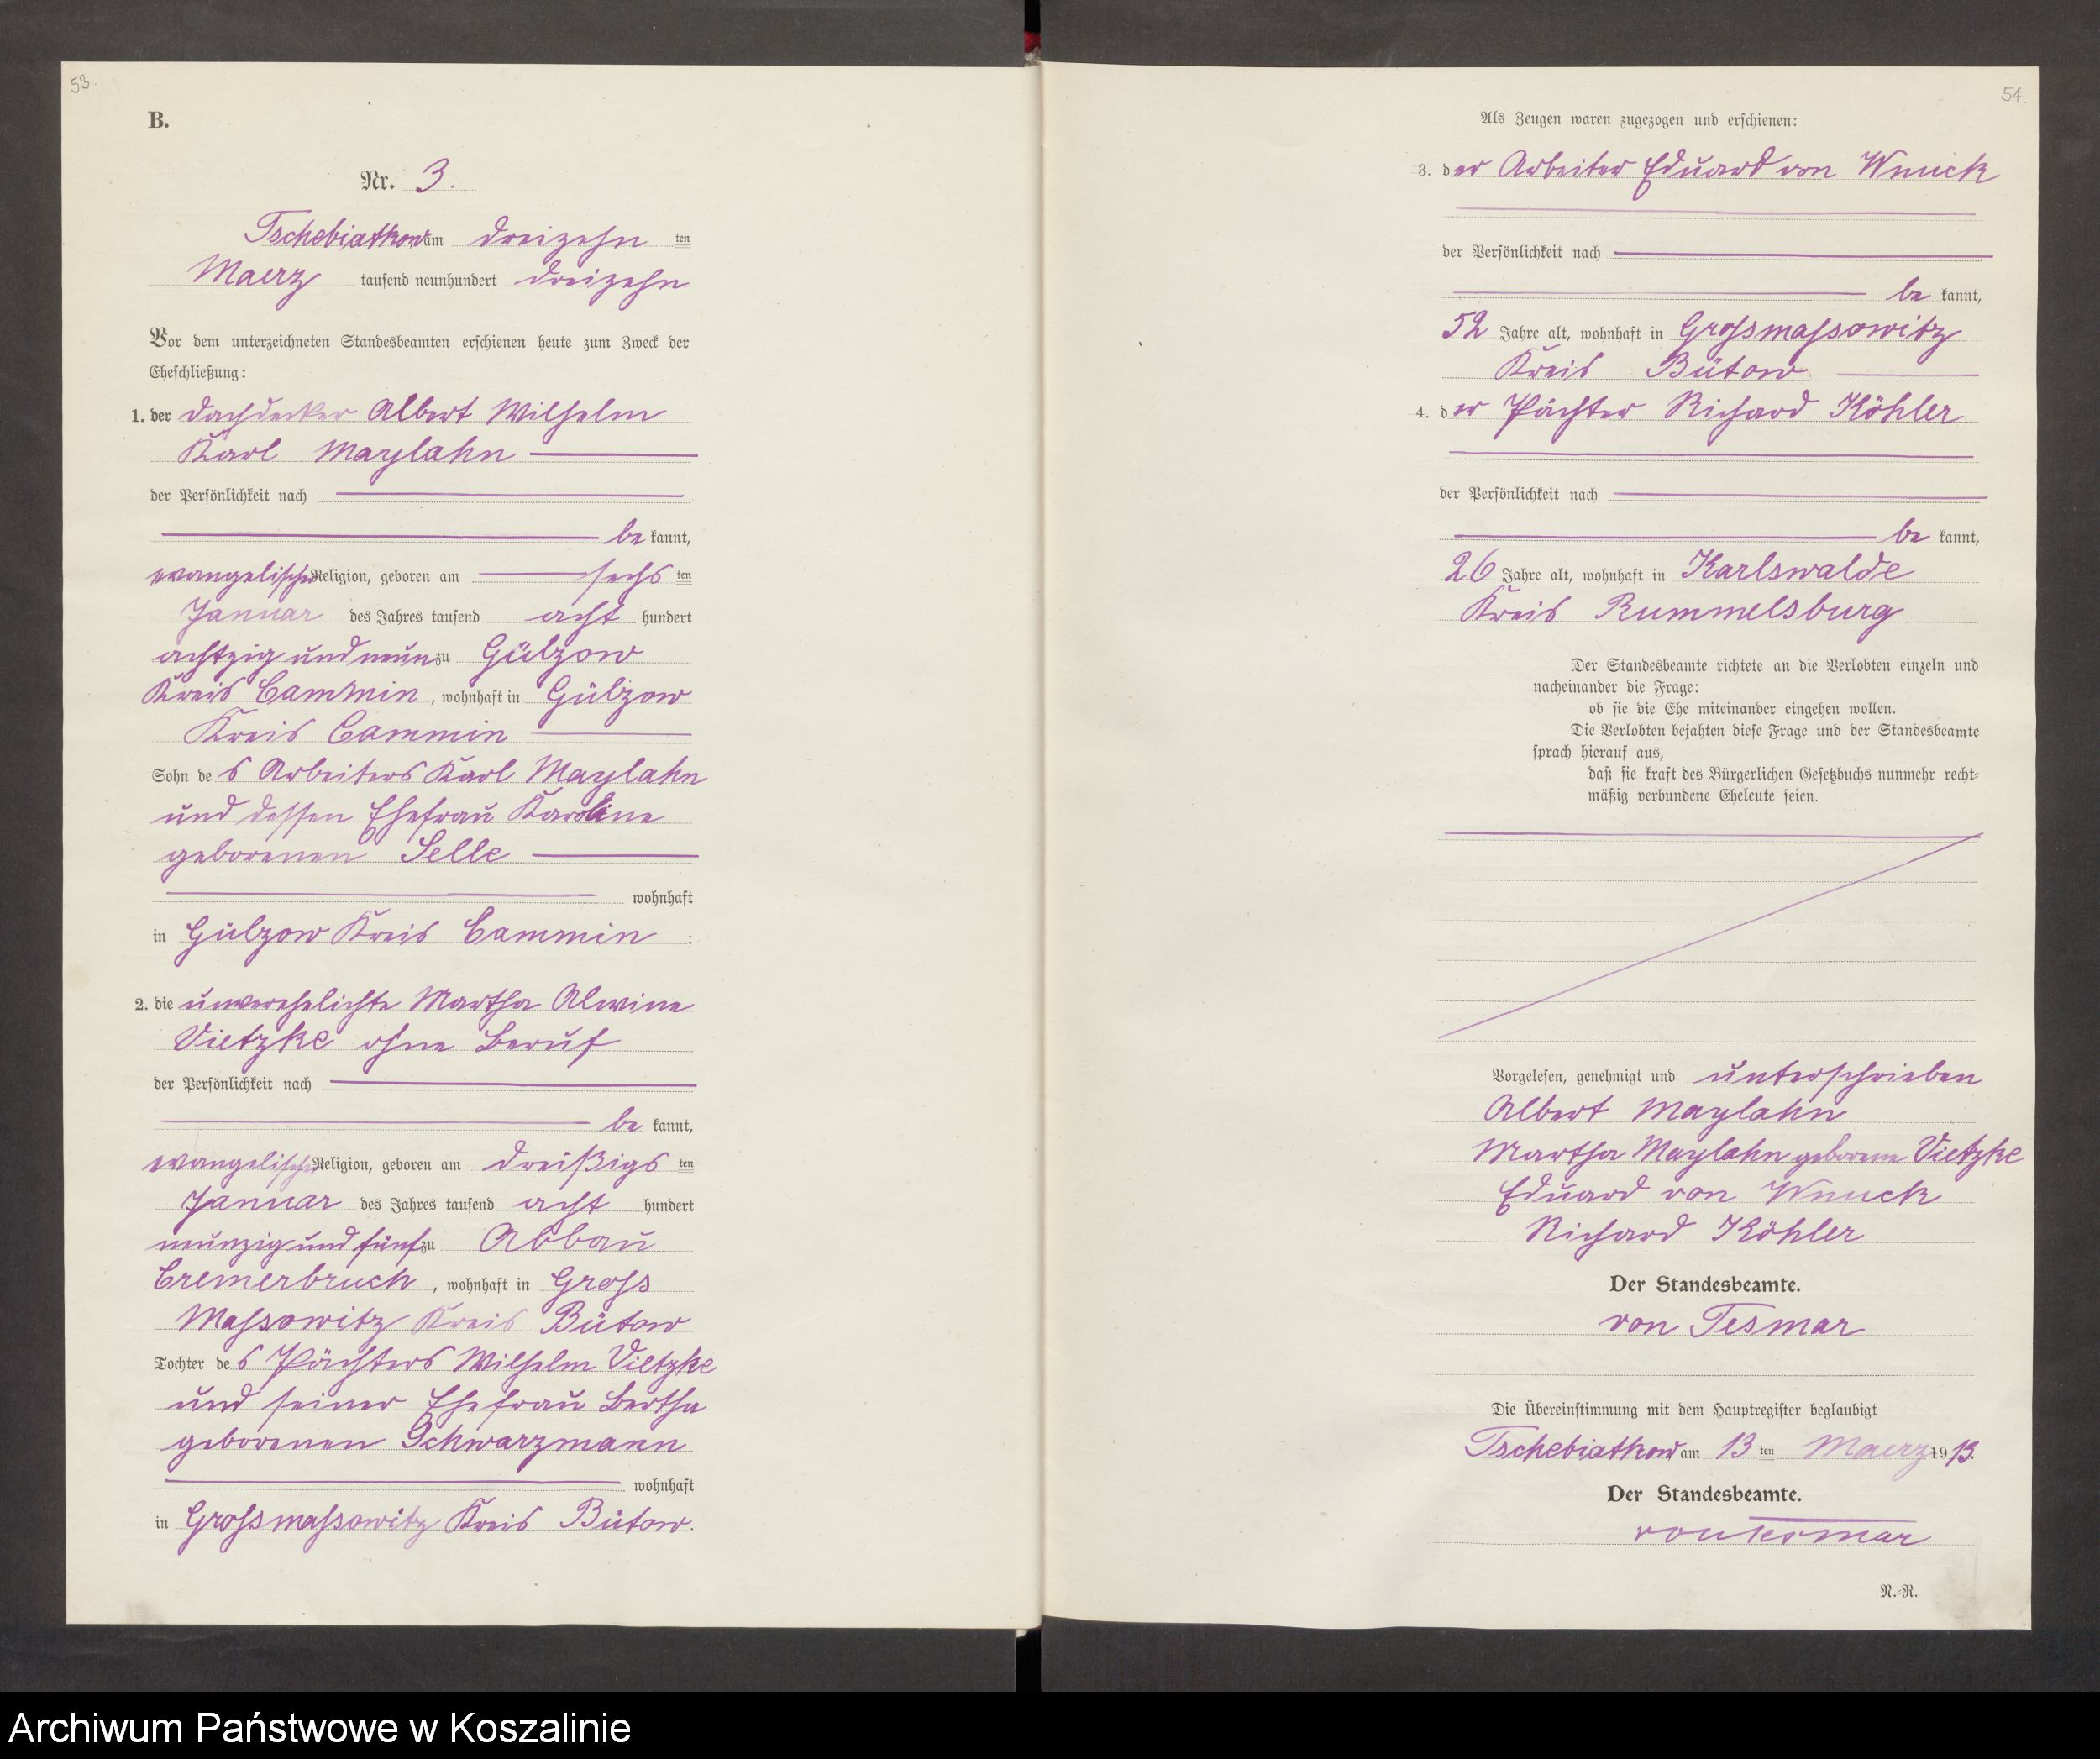 53.
B.
Nr. 3.
Tschebiatkow am dreizehn ten
Maerz tausend neunhundert dreizehn
Vor dem unterzeichneten Standesbeamten erschienen heute zum Zweck der
Eheschließung:
1. der Dachdecker Albert Wilhelm
Karl Maylahn
der Persönlichkeit nach
be kannt,
evangelischer Religion, geboren am sechs ten
Januar des Jahres tausend acht hundert
achtzig und neun zu Gülzow
Kreis Cammin, wohnhaft in Gülzow
Kreis Cammin
Sohn des Arbeiters Karl Maylahn
und dessen Ehefrau Karoline
geborenen Selle
wohnhaft
in Gülzow Kreis Cammin ;
2. die unverehelichte Martha Alwine
Vietzke ohne Beruf
der Persönlichkeit nach
be kannt,
evangelischer Religion, geboren am dreißigs ten
Januar des Jahres tausend acht hundert
neunzig und fünf zu Abbau
Cremerbruch, wohnhaft in Gross
Massowitz Kreis Bütow
Tochter des Pächters Wilhelm Vietzke
und seiner Ehefrau Bertha
geborenen Schwarzmann
wohnhaft
in Grossmassowitz Kreis Bütow.
54.
Als Zeugen waren zugezogen und erschienen:
3. der Arbeiter Eduard von Wnuck
der Persönlichkeit nach
be kannt,
52 Jahre alt, wohnhaft in Grossmassowitz
Kreis Bütow
4. der Pächter Richard Köhler
der Persönlichkeit nach
be kannt,
26 Jahre alt, wohnhaft in Karlswalde
Kreis Rummelsburg
Der Standesbeamte richtete an die Verlobten einzeln und
nacheinander die Frage:
ob sie die Ehe miteinander eingehen wollen.
Die Verlobten bejahten diese Frage und der Standesbeamte
sprach hierauf aus,
daß sie kraft des Bürgerlichen Gesetzbuchs nunmehr recht-
mäßig verbundene Eheleute seien.
Vorgelesen, genehmigt und unterschrieben
Albert Maylahn
Martha Maylahn geborene Vietzke
Eduard von Wnuck
Richard Köhler
Der Standesbeamte.
von Tesmar
Die Übereinstimmung mit dem Hauptregister beglaubigt
Tschebiatkow am 13 ten Maerz 1913.
Der Standesbeamte.
von Tesmar
N.-R.
Archiwum Państwowe w Koszalinie